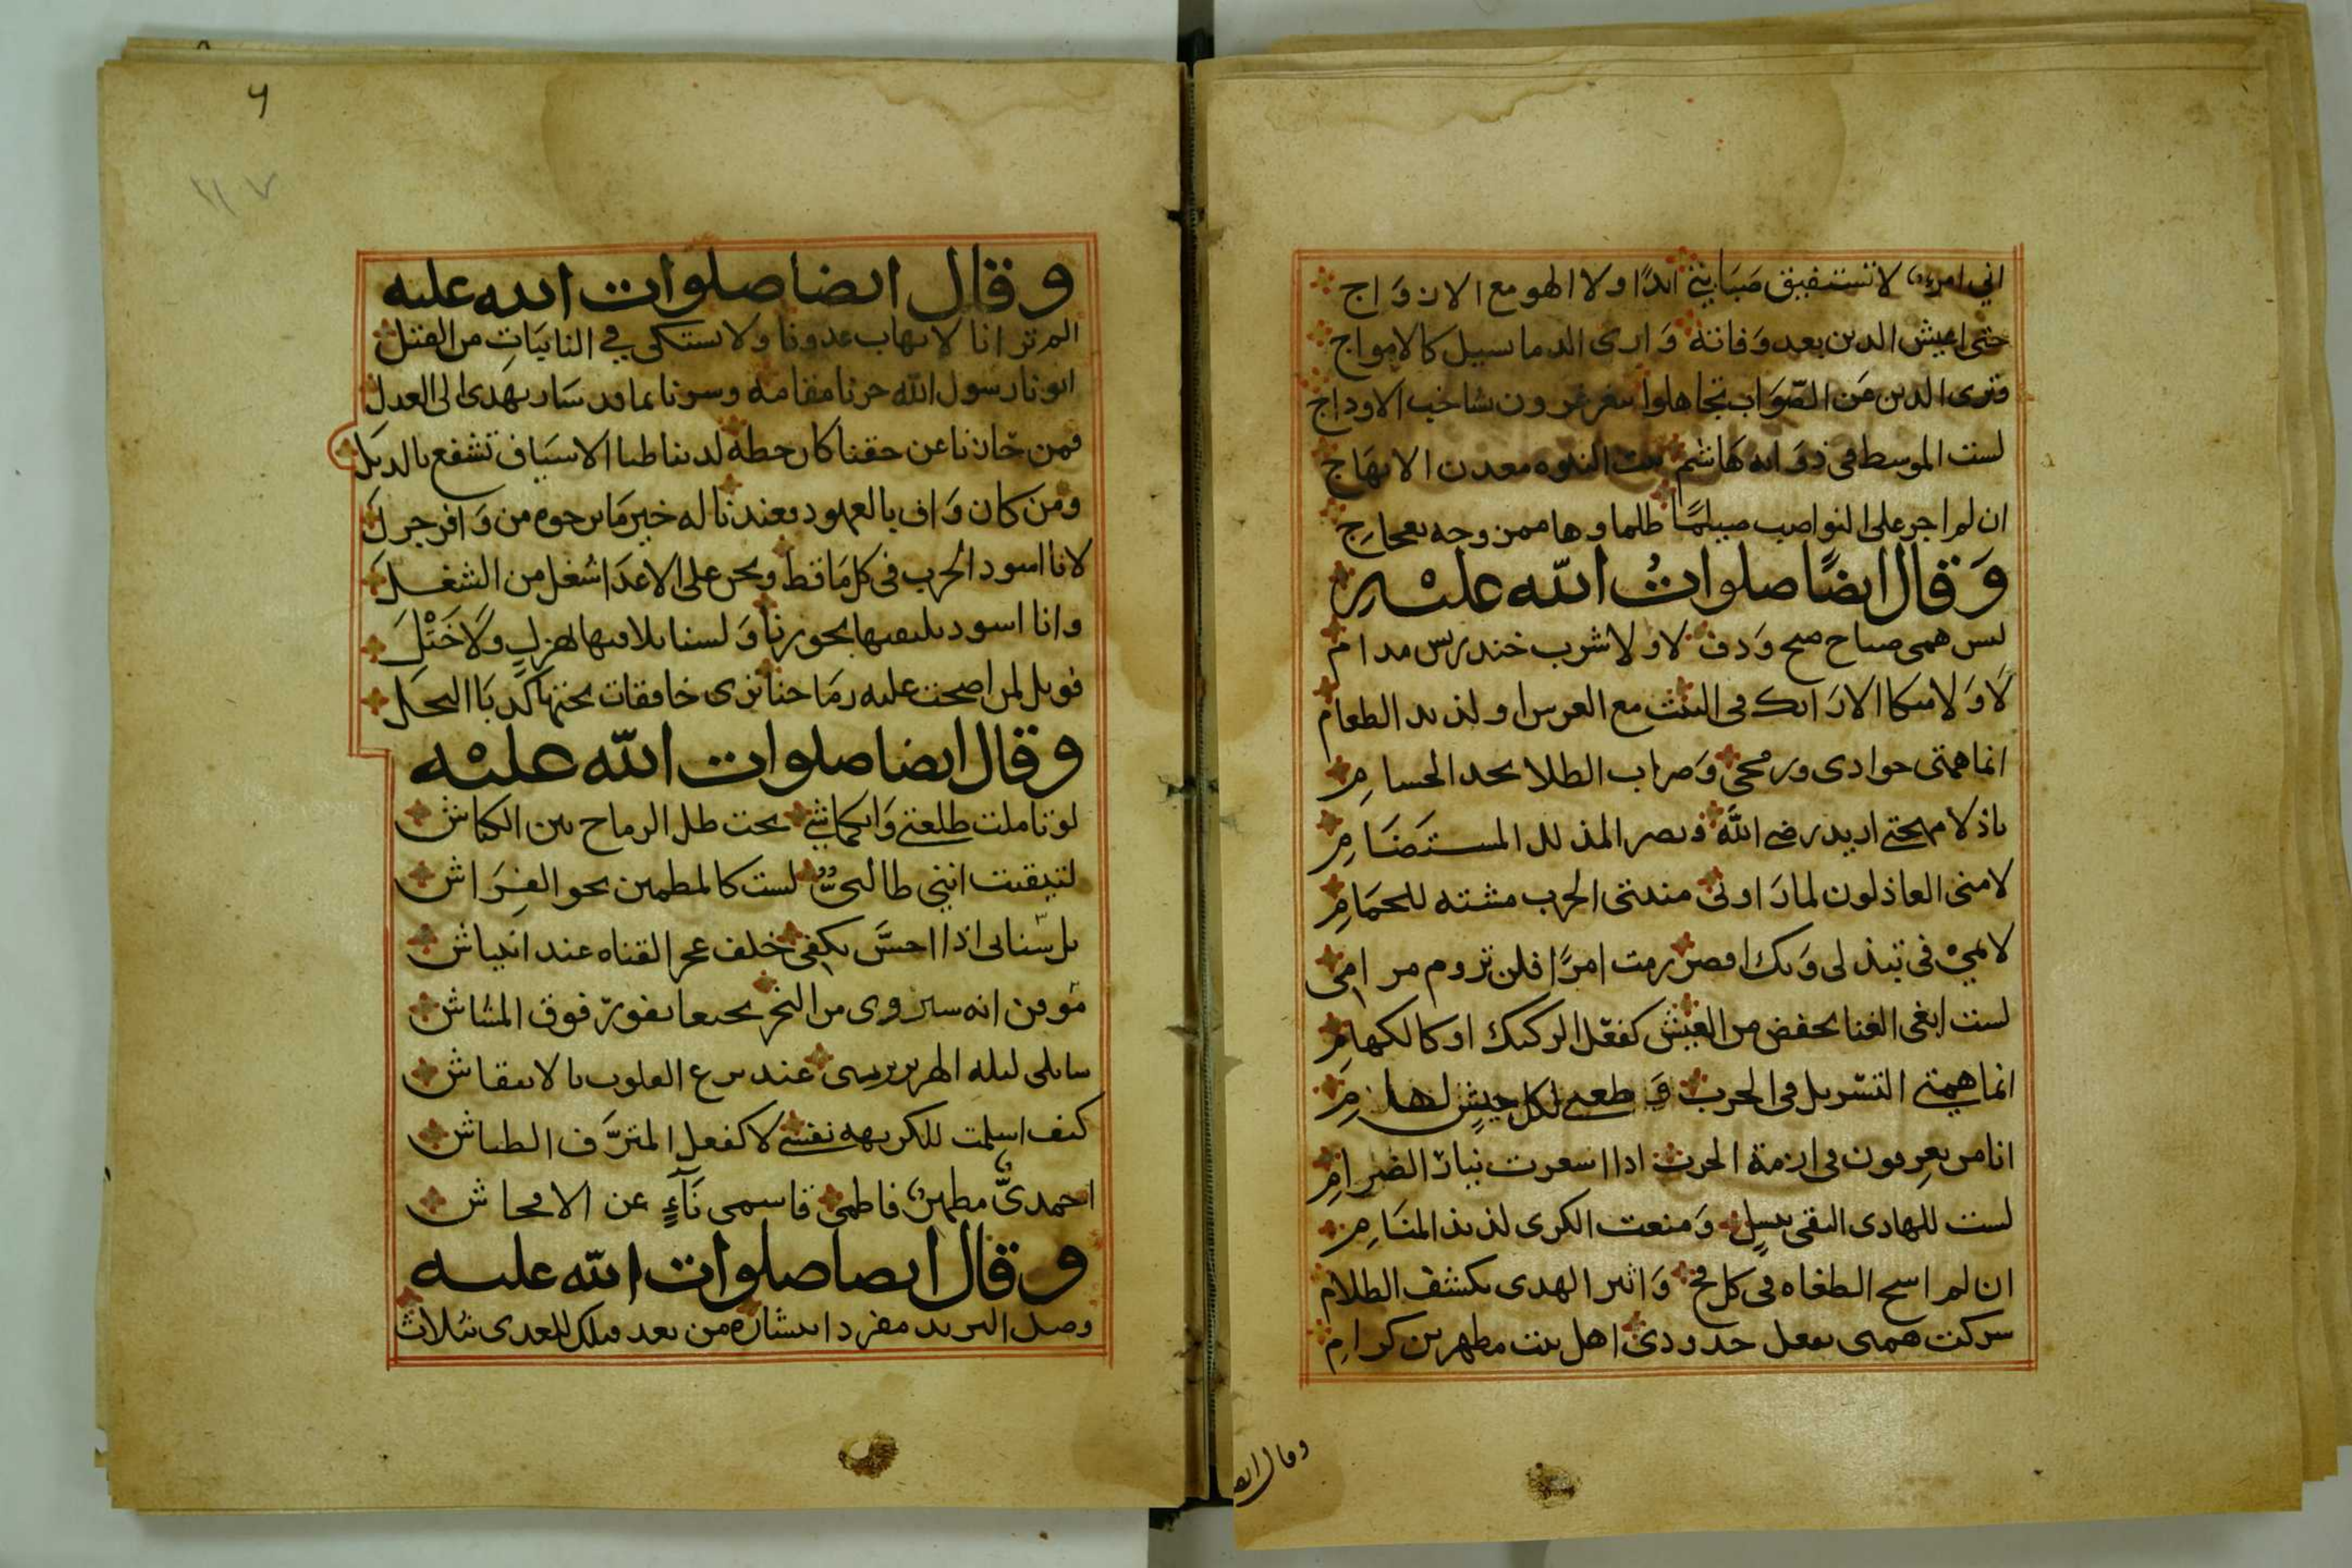 اني امرء لا تستفيق صبابتي ابدًا ولا الهو مع الازواج
حتى اعيش الدين بعد وفاته وارى الدما سيل كالامواج
فترى الدين عن الصواب تجاهلوا شاخب الاوداج
لست الموسط في ذوابه هاشم بيت النبوه معدن الابهاج
ان لم اجر على النواصب صيلمًا ظلما
وَقال ايضًا صلواتُ الله عليْهِ
ليس همى صباح ولا شرب خندريس مدام
لا وَلا متكا الارَايك في البيت مع العرس او لذيد الطعام
انما همتى جوادى ورمحي وَضراب الطلا بحد الحسامِ
باذلا مهجتي اريد رضى اللهَ ونصر المذلل المستضَامِ
لامنى العاذلون لما رَاونى الحرب مشته للحمَامِ
لايميْ في تبذلى وَيك اقصر رمت امرًا فلن تروم مرامى
لست ابغى الغنا بخفض من العيش كفعل الركيك او كالكهامِ
انما همتي التسربل في الحرب وَ طعنى لكل جيشٍ لهامِ
انا من يعرفون في ازمة الحرب اذا اسعرت نيارُ الضرامِ
لست للهادى التقى بسبل وَمنعت الكرى لذيذ المنَامِ
ان لم اسح الطغاه في كل فج وَاثير الهدى بكشف الظلام
جدودى اهل بيت مطهرين كرامِ
وقال ايض
٦
٧
وقال ايضا صلوات الله عليه
الم تر انا لا نهاب عدونا ولا نستكى في النايبَاتِ من القتل
ابونا رسول الله حزنا مقامه وسرنا بما قد سَار يهدى الى العدل
فمن حَاد نا عن حقنا كان حطه لدينا ظبا الاسيَاف تشفع بالديل
ومن كان وَاف بالعهود فعندنا له خير مَا يرجوه من وَافر جزل
لانا اسود الحرب في كل مَاقط ونحن على الاعدَا اشغل من الشغل
وانا اسود وَلسنا نلاقيها بهزلٍ ولَا خَتْلَ
فويل لمن اضحت عليه رمَاحنا ترى خافقات
وقال ايضا صلوات الله عليْه
لو تاملت طلعتي وَانكماشي تحت ظل الرماح بين الكباش
لتيقنت انني طالبىٌ لست كالمطمين نحو الفِرَاش
بل سنانى اذا احسَّ بكفى خلف عجر القناه عند انتياش
موقن انه سيروى من النحر نجيعا يفورُ فوق المشاش
سايلى ليله الهرير عند نزع القلوب بالانتقاش
كيف اسلمت للكريهه نفسي لا كفعل المترَّف الطياش
احمدىٌّ مطهرٌ فاطمى قاسمى نَآءٍ عن الافحاش
وقال ايضا صلوات الله عليه
وصل البريد مفردا ببشاره من بعد قتلك للعدى بثلاث